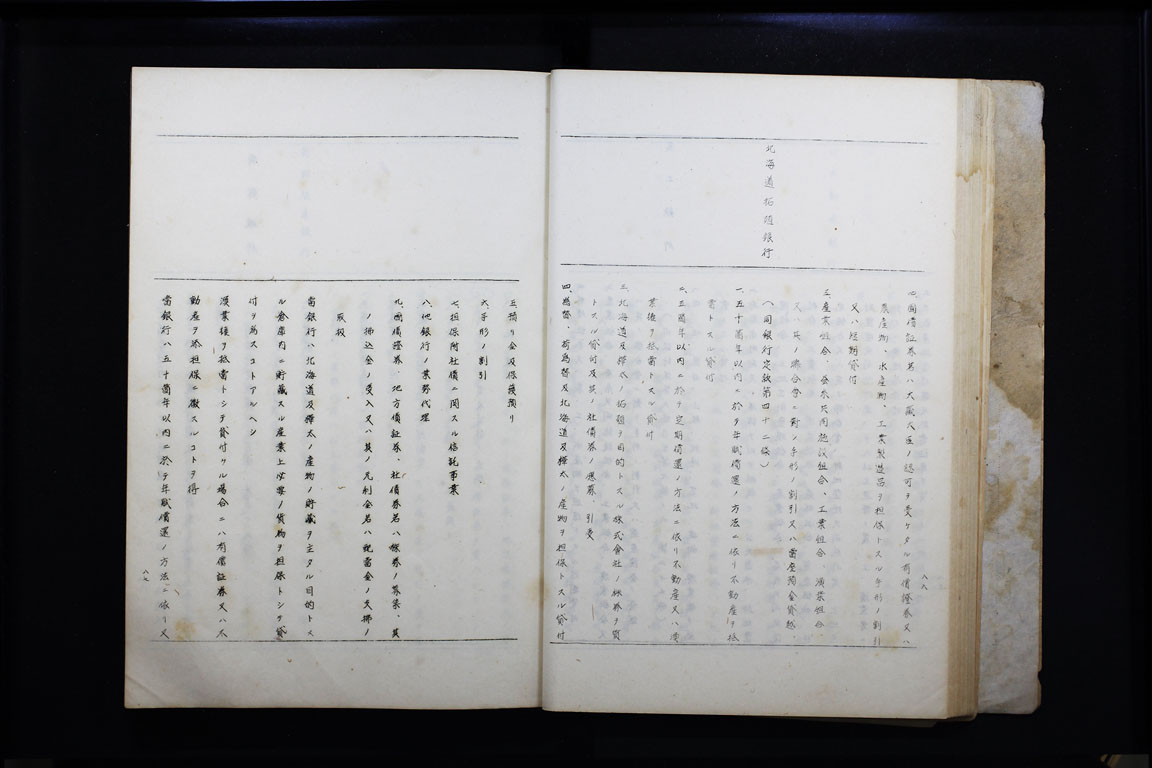 四、国債証券若ハ大蔵大臣ノ認可ヲ受ケタル有価証券又ハ
農産物、水産物、工業製造品ヲ担保トスル手形ノ割引
又ハ短期貸付
産業組合、工業組合、漁業組合、
又ハ其ノ聯合会ニ対シ手形ノ割引又ハ当座預金貸越、
北海道拓殖銀行
(同銀行定款第四十二條)
一、五十箇年以内ニ於テ年賦償還ノ方法ニ依リ不動産ヲ抵
当トスル貸付
二、五箇年以内ニ於テ定期償還ノ方法ニ依リ不動産又ハ漁
業権ヲ抵当トスル貸付
三、北海道及樺太ノ拓殖ヲ目的トスル株式會社ノ株券ヲ質
トスル貸付及其ノ社債券ノ應募、引受
四、為替、荷為替及北海道及樺太ノ産物ヲ担保トスル貸付
八八
五、預リ金及保護預リ
六、手形ノ割引
七、担保附社債ニ関スル信託事業
八、他銀行ノ業務代理
九、国債證券、地方債証券、社債券若ハ株券ノ募集、其
ノ拂込金ノ受入又ハ其ノ元利金若ハ配當金ノ支拂ノ
取扱
當銀行ハ北海道及樺太ノ産物ノ貯蔵ヲ主タル目的トス
ル倉庫内ニ貯蔵スル産業上必要ノ貨物ヲ担保トシテ貸
付ヲ為スコトアルヘシ
漁業権ヲ抵當トシテ貸付クル場合ニハ有價証券又ハ不
動産ヲ添担保ニ徴スルコトヲ得
當銀行ハ五十箇年以内ニ於テ年賦償還ノ方法ニ依リ又